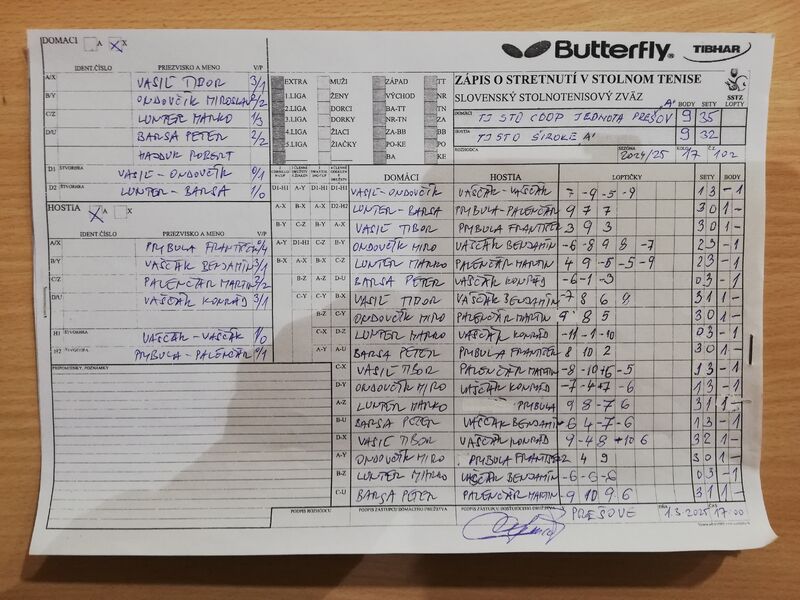 DOMÁCI A X
Butterfly TIBHAR
IDENT.ČÍSLO PRIEZVISKO A MENO V/P
A/X VASIĽ TIBOR 3/1
B/Y ONDOVČÍK MIROSLAV 2/2
C/Z LUNTER MARKO 1/3
D/U BARSA PETER 2/2
HAJDUK ROBERT
D1 ŠTVORHRA VASIĽ - ONDOVČÍK 0/1
D2 ŠTVORHRA LUNTER - BARSA 1/0
HOSTIA A X
IDENT.ČÍSLO PRIEZVISKO A MENO V/P
A/X PRIBULA FRANTIŠEK 0/4
B/Y VAŠČÁK BENJAMÍN 3/1
C/Z PALENČÁR MARTIN 2/2
D/U VAŠČÁK KONRÁD 3/1
H1 ŠTVORHRA VAŠČÁK - VAŠČÁK 1/0
H2 ŠTVORHRA PRIBULA - PALENČÁR 0/1
PRIPOMIENKY, POZNÁMKY
EXTRA MUŽI ZÁPAD TT
1.LIGA ŽENY VÝCHOD NR
2.LIGA DORCI BA-TT TN
3.LIGA DORKY NR-TN ZA
4.LIGA ŽIACI ZA-BB BB
5.LIGA ŽIAČKY PO-KE PO
BA KE
ZÁPIS O STRETNUTÍ V STOLNOM TENISE
SLOVENSKÝ STOLNOTENISOVÝ ZVÄZ
SSTZ
BODY SETY LOPTY
DOMÁCI TJ STO COOP JEDNOTA PREŠOV A' 9 35
HOSTIA TJ STO ŠIROKÉ A' 9 32
ROZHODCA SEZÓNA 2024/25 KOLO 17 Č. 102
DOMÁCI HOSTIA LOPTIČKY SETY BODY
D1-H1 VASIĽ - ONDOVČÍK VAŠČÁK - VAŠČÁK 7 -9 -5 -9 1 3 - 1
D2-H2 LUNTER - BARSA PRIBULA - PALENČÁR 9 7 7 3 0 1 -
A-X VASIĽ TIBOR PRIBULA FRANTIŠEK 3 9 3 3 0 1 -
B-Y ONDOVČÍK MIRO VAŠČÁK BENJAMÍN -6 -8 9 8 -7 2 3 - 1
C-Z LUNTER MARKO PALENČÁR MARTIN 4 9 -5 -5 -9 2 3 - 1
D-U BARSA PETER VAŠČÁK KONRÁD -6 -1 -3 0 3 - 1
B-X VASIĽ TIBOR VAŠČÁK BENJAMÍN -7 8 6 9 3 1 1 -
C-Y ONDOVČÍK MIRO PALENČÁR MARTIN 9 8 5 3 0 1 -
D-Z LUNTER MARKO VAŠČÁK KONRÁD -11 -1 -10 0 3 - 1
A-U BARSA PETER PRIBULA FRANTIŠEK 8 10 2 3 0 1 -
C-X VASIĽ TIBOR PALENČÁR MARTIN -8 -10 +6 -5 1 3 - 1
D-Y ONDOVČÍK MIRO VAŠČÁK KONRÁD -7 -4 +7 -6 1 3 - 1
A-Z LUNTER MARKO PRIBULA 9 8 -7 6 3 1 1 -
B-U BARSA PETER VAŠČÁK BENJAMÍN -6 4 -7 -6 1 3 - 1
D-X VASIĽ TIBOR VAŠČÁK KONRÁD 9 -4 8 +10 6 3 2 1 -
A-Y ONDOVČÍK MIRO PRIBULA FRANTIŠEK 2 4 9 3 0 1 -
B-Z LUNTER MARKO VAŠČÁK BENJAMÍN -6 -6 -6 0 3 - 1
C-U BARSA PETER PALENČÁR MARTIN -9 10 9 6 3 1 1 -
PODPIS ROZHODCU PODPIS ZÁSTUPCU DOMÁCEHO DRUŽSTVA PODPIS ZÁSTUPCU HOSŤUJÚCEHO DRUŽSTVA V PREŠOVE DŇA 1.3.2025 ČAS 17:00